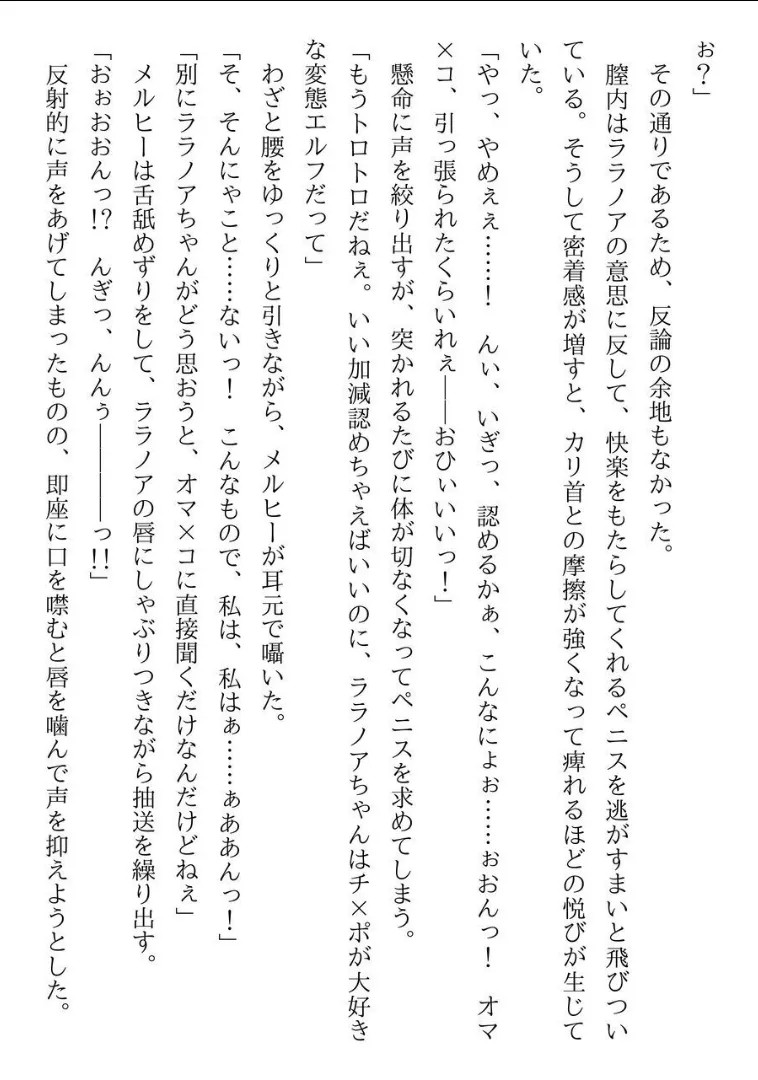 ぉ？」
　その通りであるため、反論の余地もなかった。
　膣内はララノアの意思に反して、快楽をもたらしてくれるペニスを逃がすまいと飛びつい
ている。そうして密着感が増すと、カリ首との摩擦が強くなって痺れるほどの悦びが生じて
いた。
「やっ、やめぇぇ……！　んぃ、いぎっ、認めるかぁ、こんなにょぉ……ぉおんっ！　オマ
×コ、引っ張られたくらいれぇ――おひぃいいっ！」
　懸命に声を絞り出すが、突かれるたびに体が切なくなってペニスを求めてしまう。
「もうトロトロだねぇ。いい加減認めちゃえばいいのに、ララノアちゃんはチ×ポが大好き
な変態エルフだって」
　わざと腰をゆっくりと引きながら、メルヒーが耳元で囁いた。
「そ、そんにゃこと……ないっ！　こんなもので、私は、私はぁ……ぁああんっ！」
「別にララノアちゃんがどう思おうと、オマ×コに直接聞くだけなんだけどねぇ」
　メルヒーは舌舐めずりをして、ララノアの唇にしゃぶりつきながら抽送を繰り出す。
「おぉおおんっ!?　んぎっ、んんぅ――――っ!!」
　反射的に声をあげてしまったものの、即座に口を噤むと唇を噛んで声を抑えようとした。